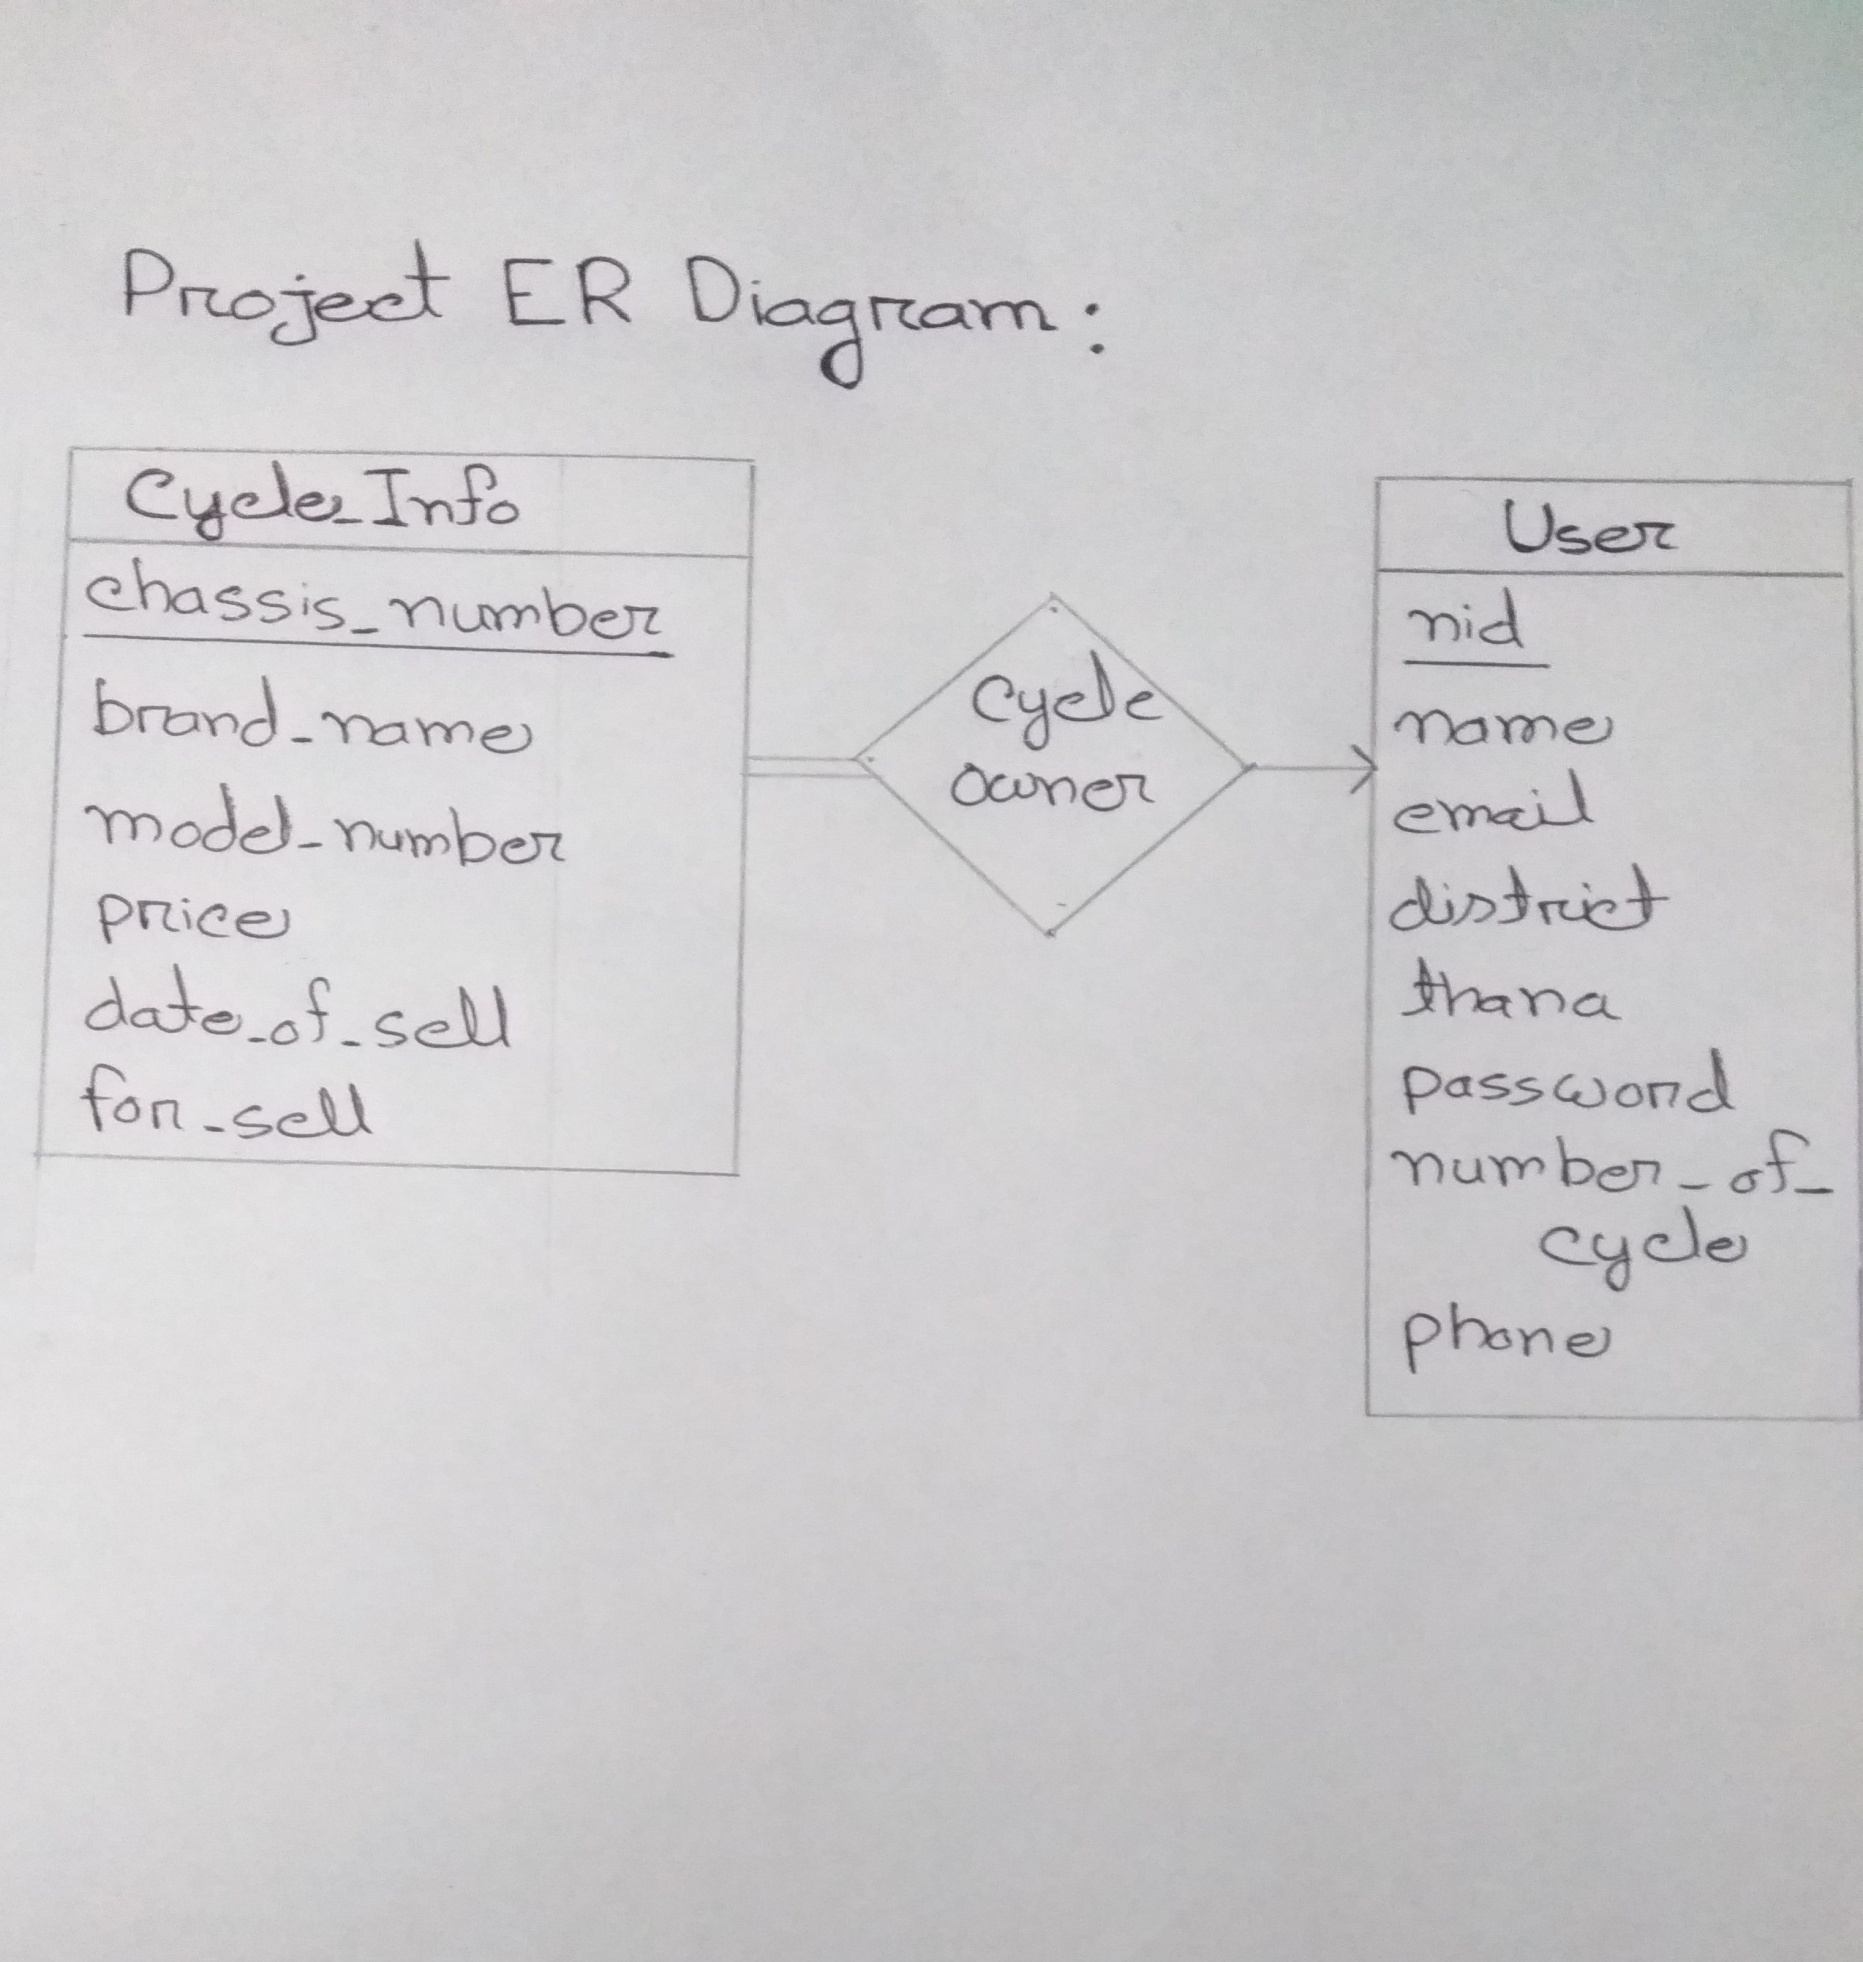 Project ER Diagram:
Cycle_Info
chassis_number
brand_name
model_number
price
date_of_sell
for_sell
Cycle
owner
User
nid
name
email
district
thana
password
number_of_
cycle
phone